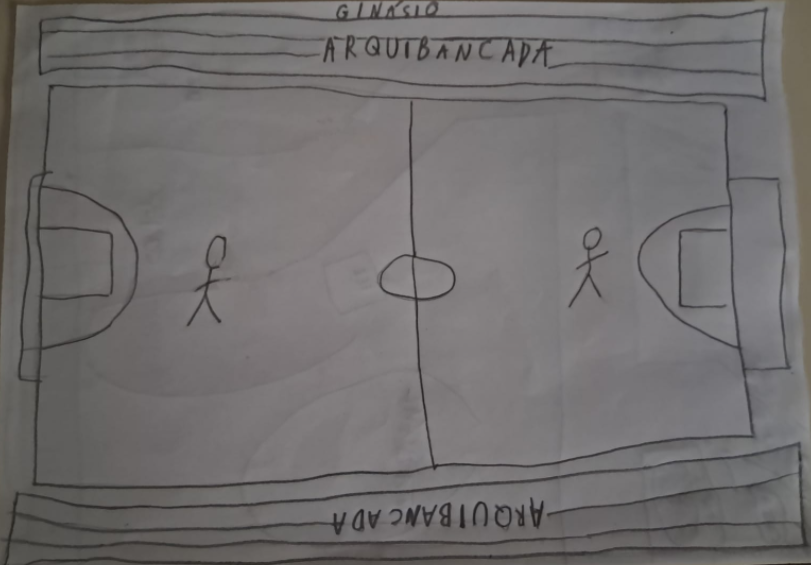 GINÁSIO
ARQUIBANCADA
ARQUIBANCADA